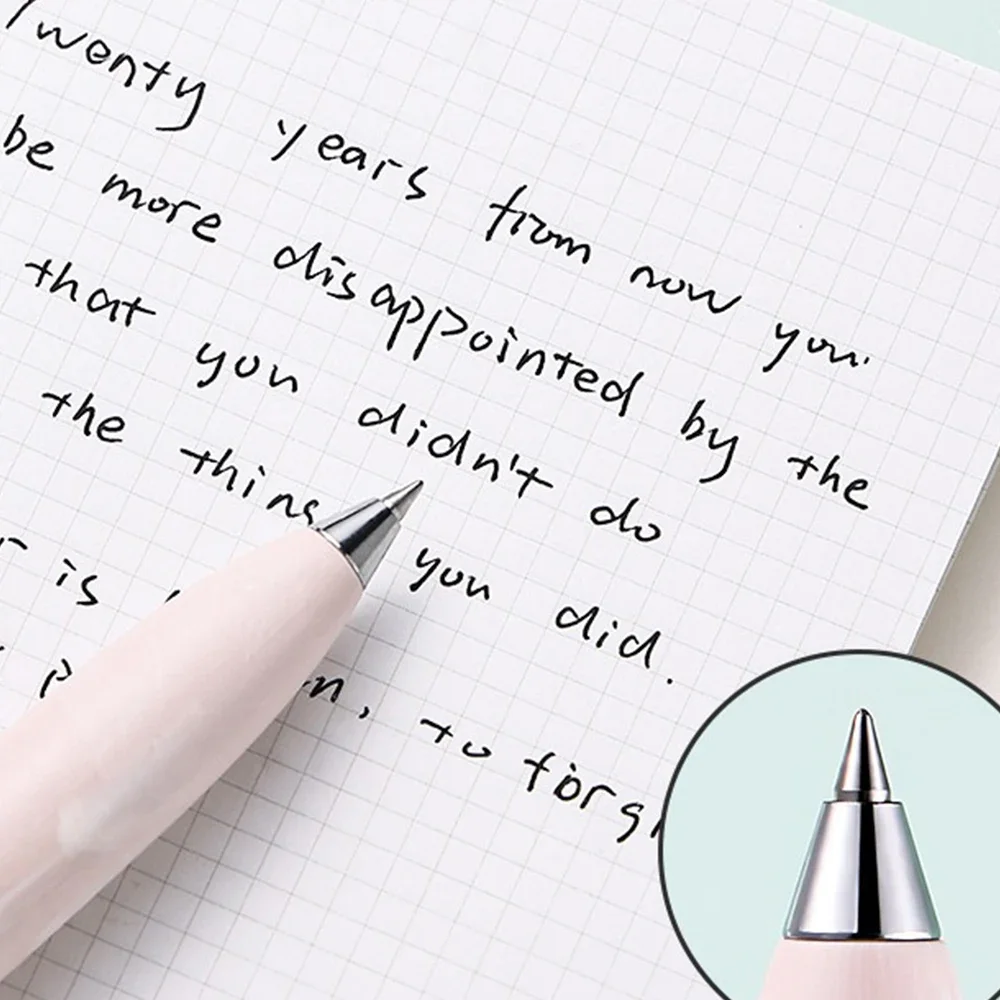 Twenty years from now you
be more disappointed by the
that you didn't do
the things you did.
is
to